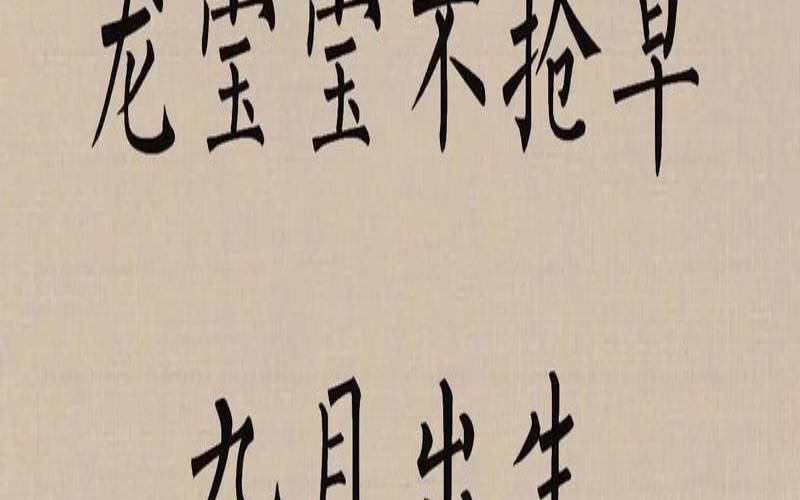 龙莹莹不抢早
九月出生